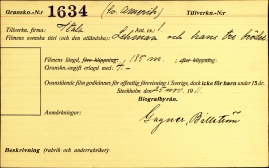 Gransku.-Nr 1634 (to Amerik.) Tillverkn.-Nr
Tillverkn. firma: Itala
Filmens svenska titel (och den utländska): Lehman och hans tre bröder
Filmens längd, före klippning: 185 m. ; efter klippning:
Granskn.-avgift erlagd med 4:-
Ovanstående film godkännes för offentlig förevisning i Sverige, dock icke för barn under 15 år.
Stockholm den 25 nov. 1911.
Biografbyrån.
Anmärkningar: Gagner, Billström
Beskrivning (rubrik och underrubriker):